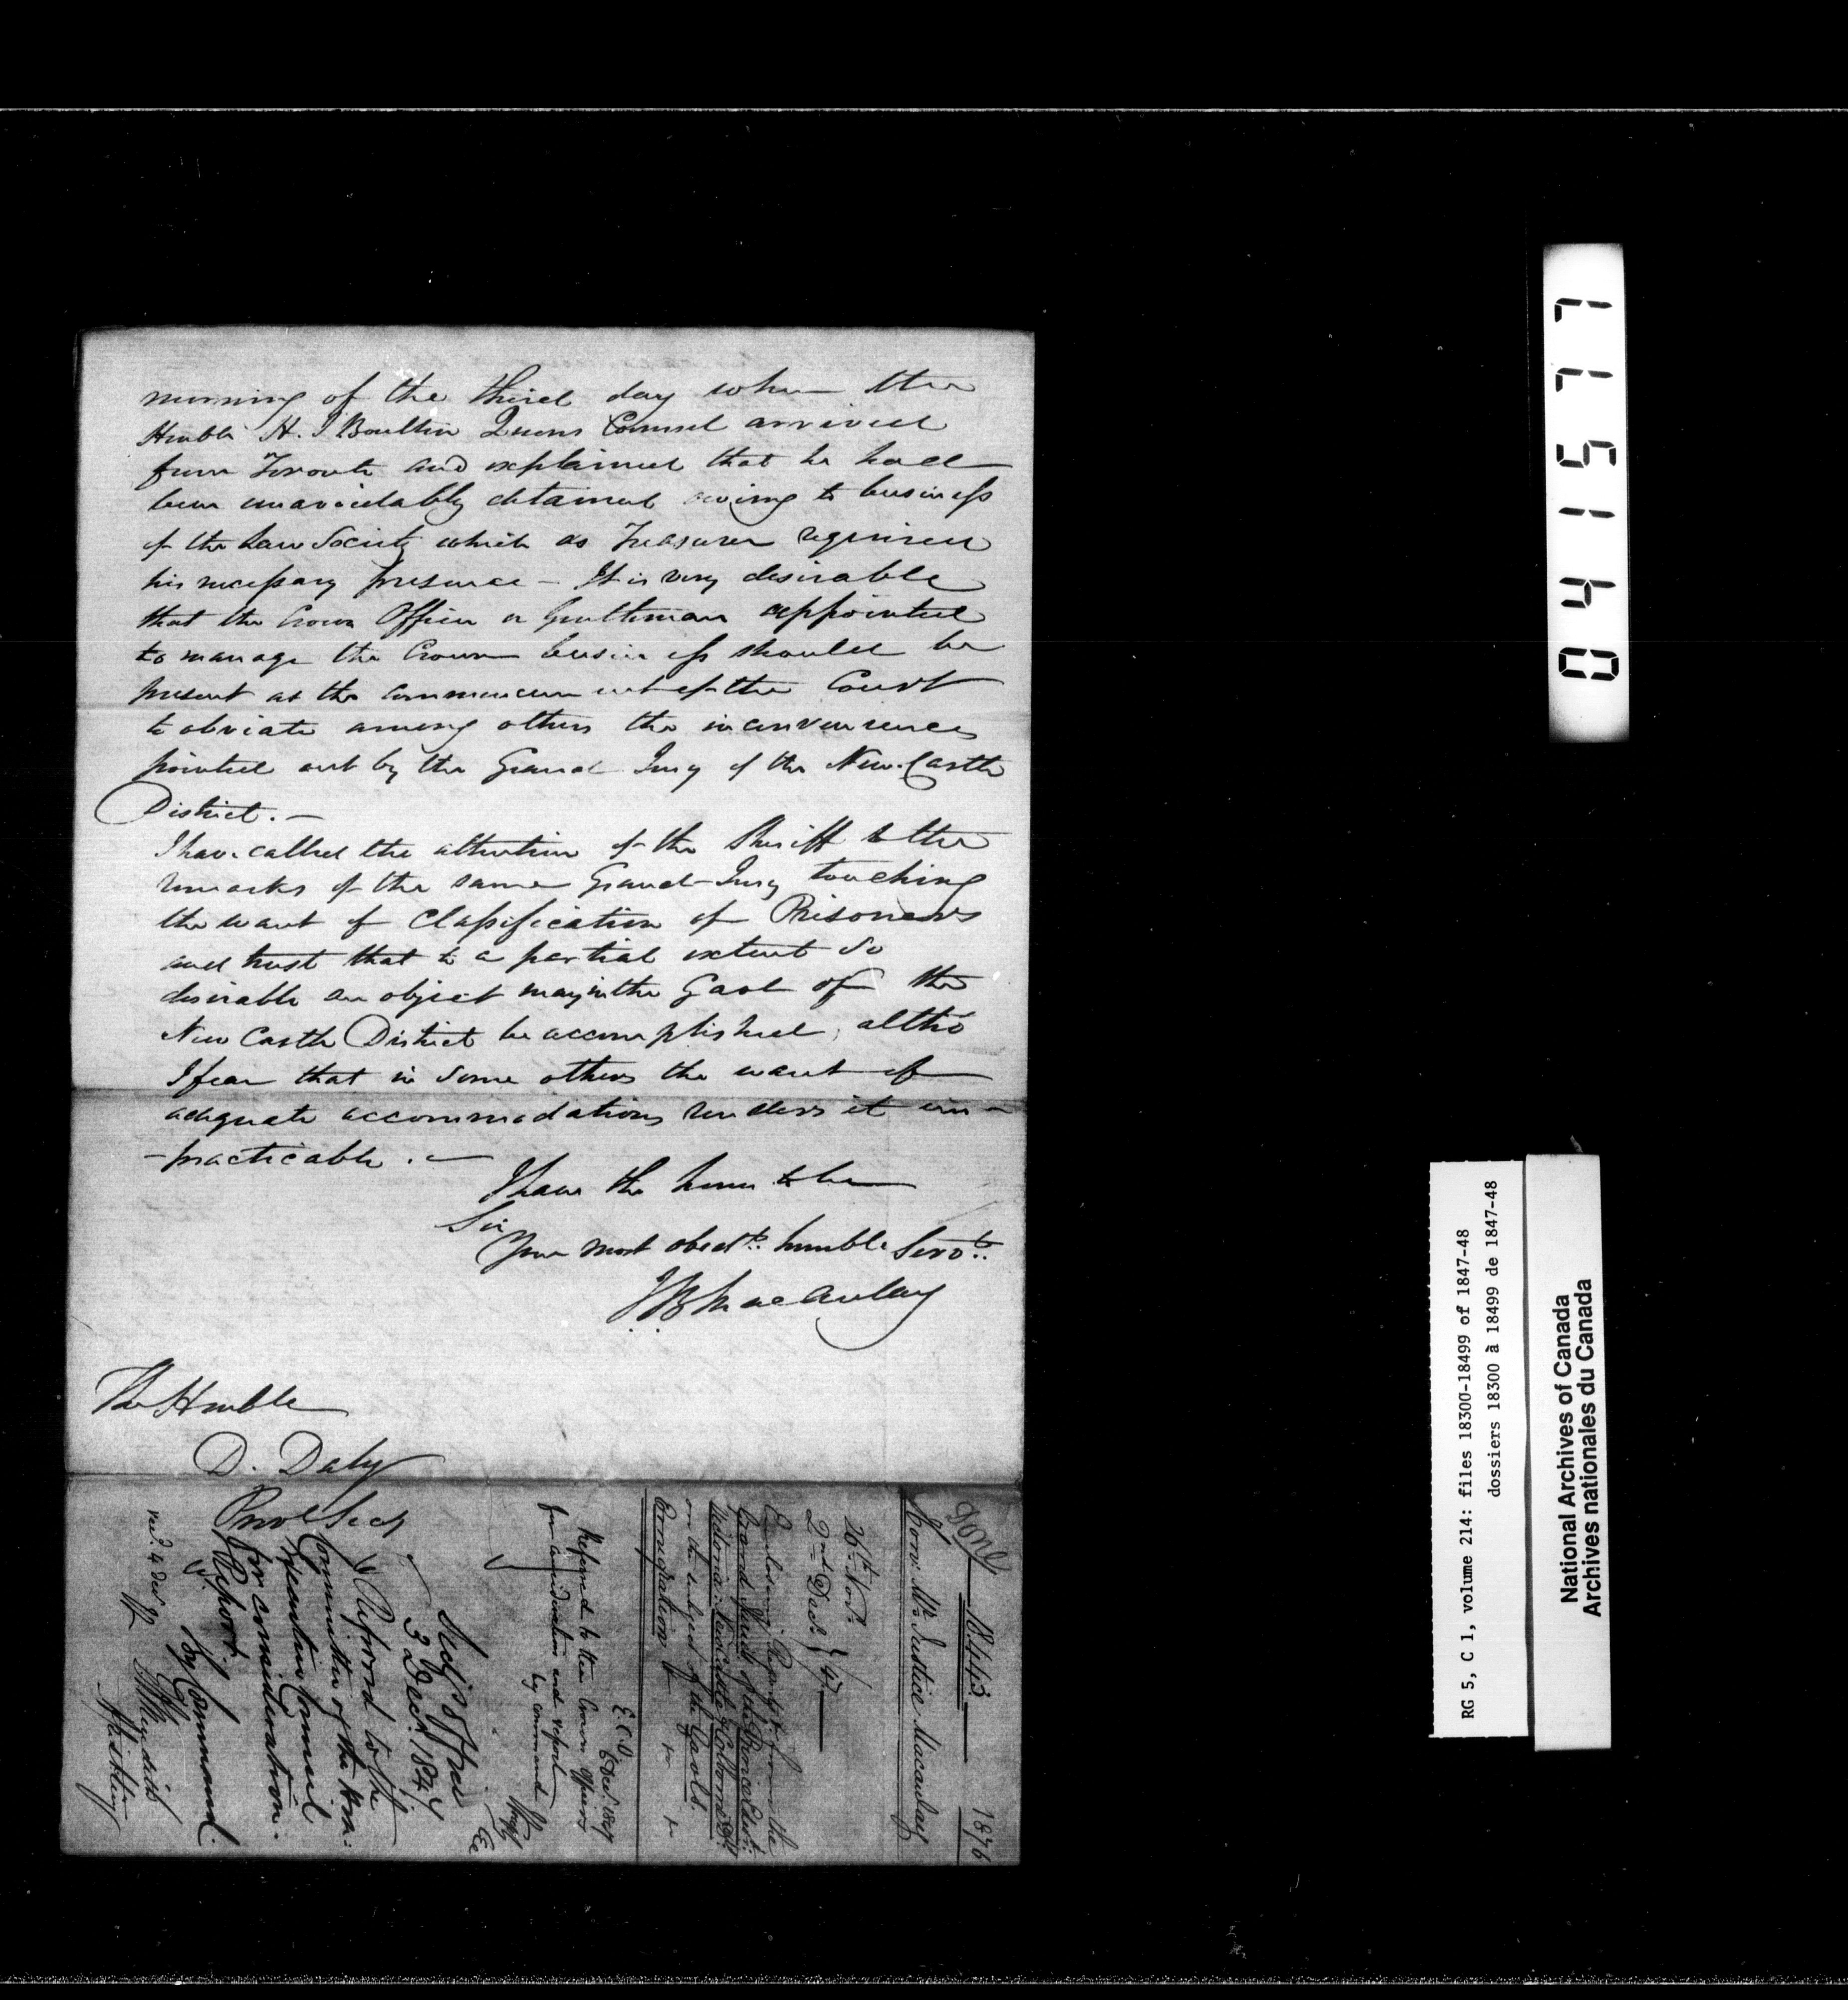 morning of the third day when the
Honble H. J Boulton Queens Counsel arrived
from Toronto and explained that he had
been unavoidably detained owing to business
of the Law Society which as Treasurer required
his necessary presence – It is very desirable
that the Crown Officer or Gentleman appointed
to manage the Crown business should be
present at the commencement of the Court
to obviate among others the inconveniences
pointed out by the Grand Jury of the New Castle
District. –
I have called the attention of the Sheriff to the
remarks of the same Grand Jury touching
the want of Classification of Prisoners
and trust that to a partial extent so
desirable an object may in the Gaol of the
New Castle District be accomplished, altho
I fear that in some others the want of
adequate accommodations renders it im-
-practicable. –
I have the honor to be
Sir
Your most obedt. humble Servt.
J B Macaulay
The Honble
D. Daly
Provl Secy
Done
18443
1876
Honr. Mr. Justice Macaulay
26th Novr.
2nd Decr. } 47
Enclosing from the
Grand Juries of the Prince Edwd.
Victoria Newcastle & Colborne
on the subject of the Gaols.
Emigration &c &c
E. C. O
6 Decr. 1847
Referred to the Crown Officers
for consideration and report
by command
Secy's Office
3 Decr. 1847
Referred to the
Committee of the Hon:
Executive Council
for consideration &
Report.
By Command.
recd. 4 Dec 47
041577
RG 5, C 1, volume 214: files 18300-18499 of 1847-48
dossiers 18300 à 18499 de 1847-48
National Archives of Canada
Archives nationales du Canada